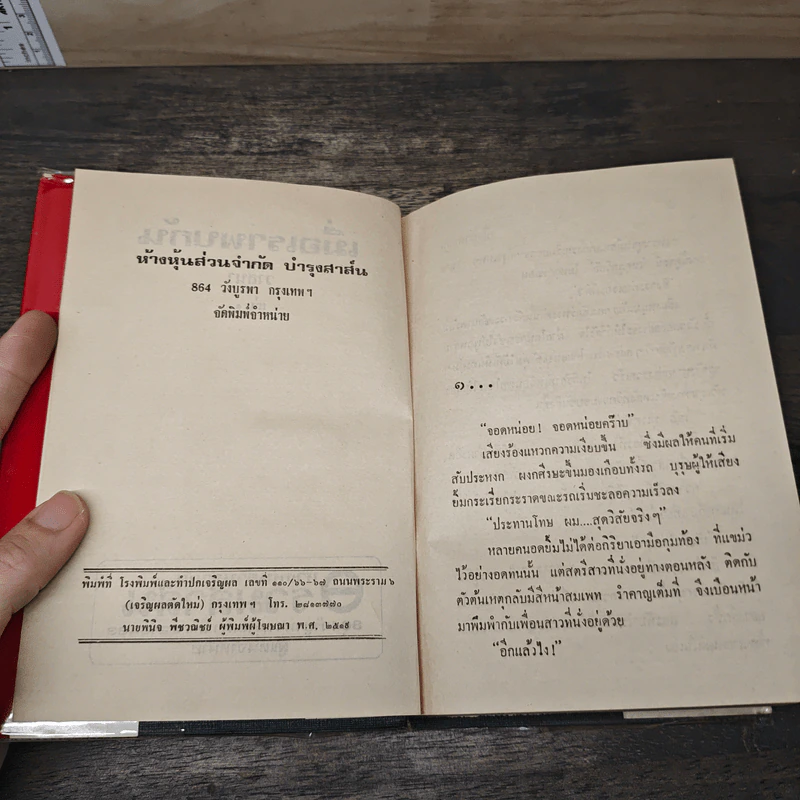 ห้างหุ้นส่วนจำกัด บำรุงสาส์น
864 วังบูรพา กรุงเทพฯ
จัดพิมพ์จำหน่าย
พิมพ์ที่ โรงพิมพ์และทำปกเจริญผล เลขที่ ๑๑๐/๖๖-๖๗ ถนนพระราม ๖
(เจริญผลตัดใหม่) กรุงเทพ ฯ โทร. ๒๘๑๓๗๗๐
นายพินิจ พืชวณิชย์ ผู้พิมพ์ผู้โฆษณา พ.ศ. ๒๕๑๙
๑...
“จอดหน่อย! จอดหน่อยคร๊าบ”
เสียงร้องแหวกความเงียบขึ้น ซึ่งมีผลให้คนที่เริ่ม
สับประหงก ผงกศีรษะขึ้นมองเกือบทั้งรถ บุรุษผู้ให้เสียง
ยิ้มกระเรี่ยกระราดขณะรถเริ่มชะลอความเร็วลง
“ประทานโทษ ผม....สุดวิสัยจริงๆ”
หลายคนอดยิ้มไม่ได้ต่อกิริยาเอามือกุมท้อง ที่แขม่ว
ไว้อย่างอดทนนั้น แต่สตรีสาวที่นั่งอยู่ทางตอนหลัง ติดกับ
ตัวต้นเหตุกลับมีสีหน้าสมเพท รำคาญเต็มที่ จึงเบือนหน้า
มาพึมพำกับเพื่อนสาวที่นั่งอยู่ด้วย
“อีกแล้วไง!”